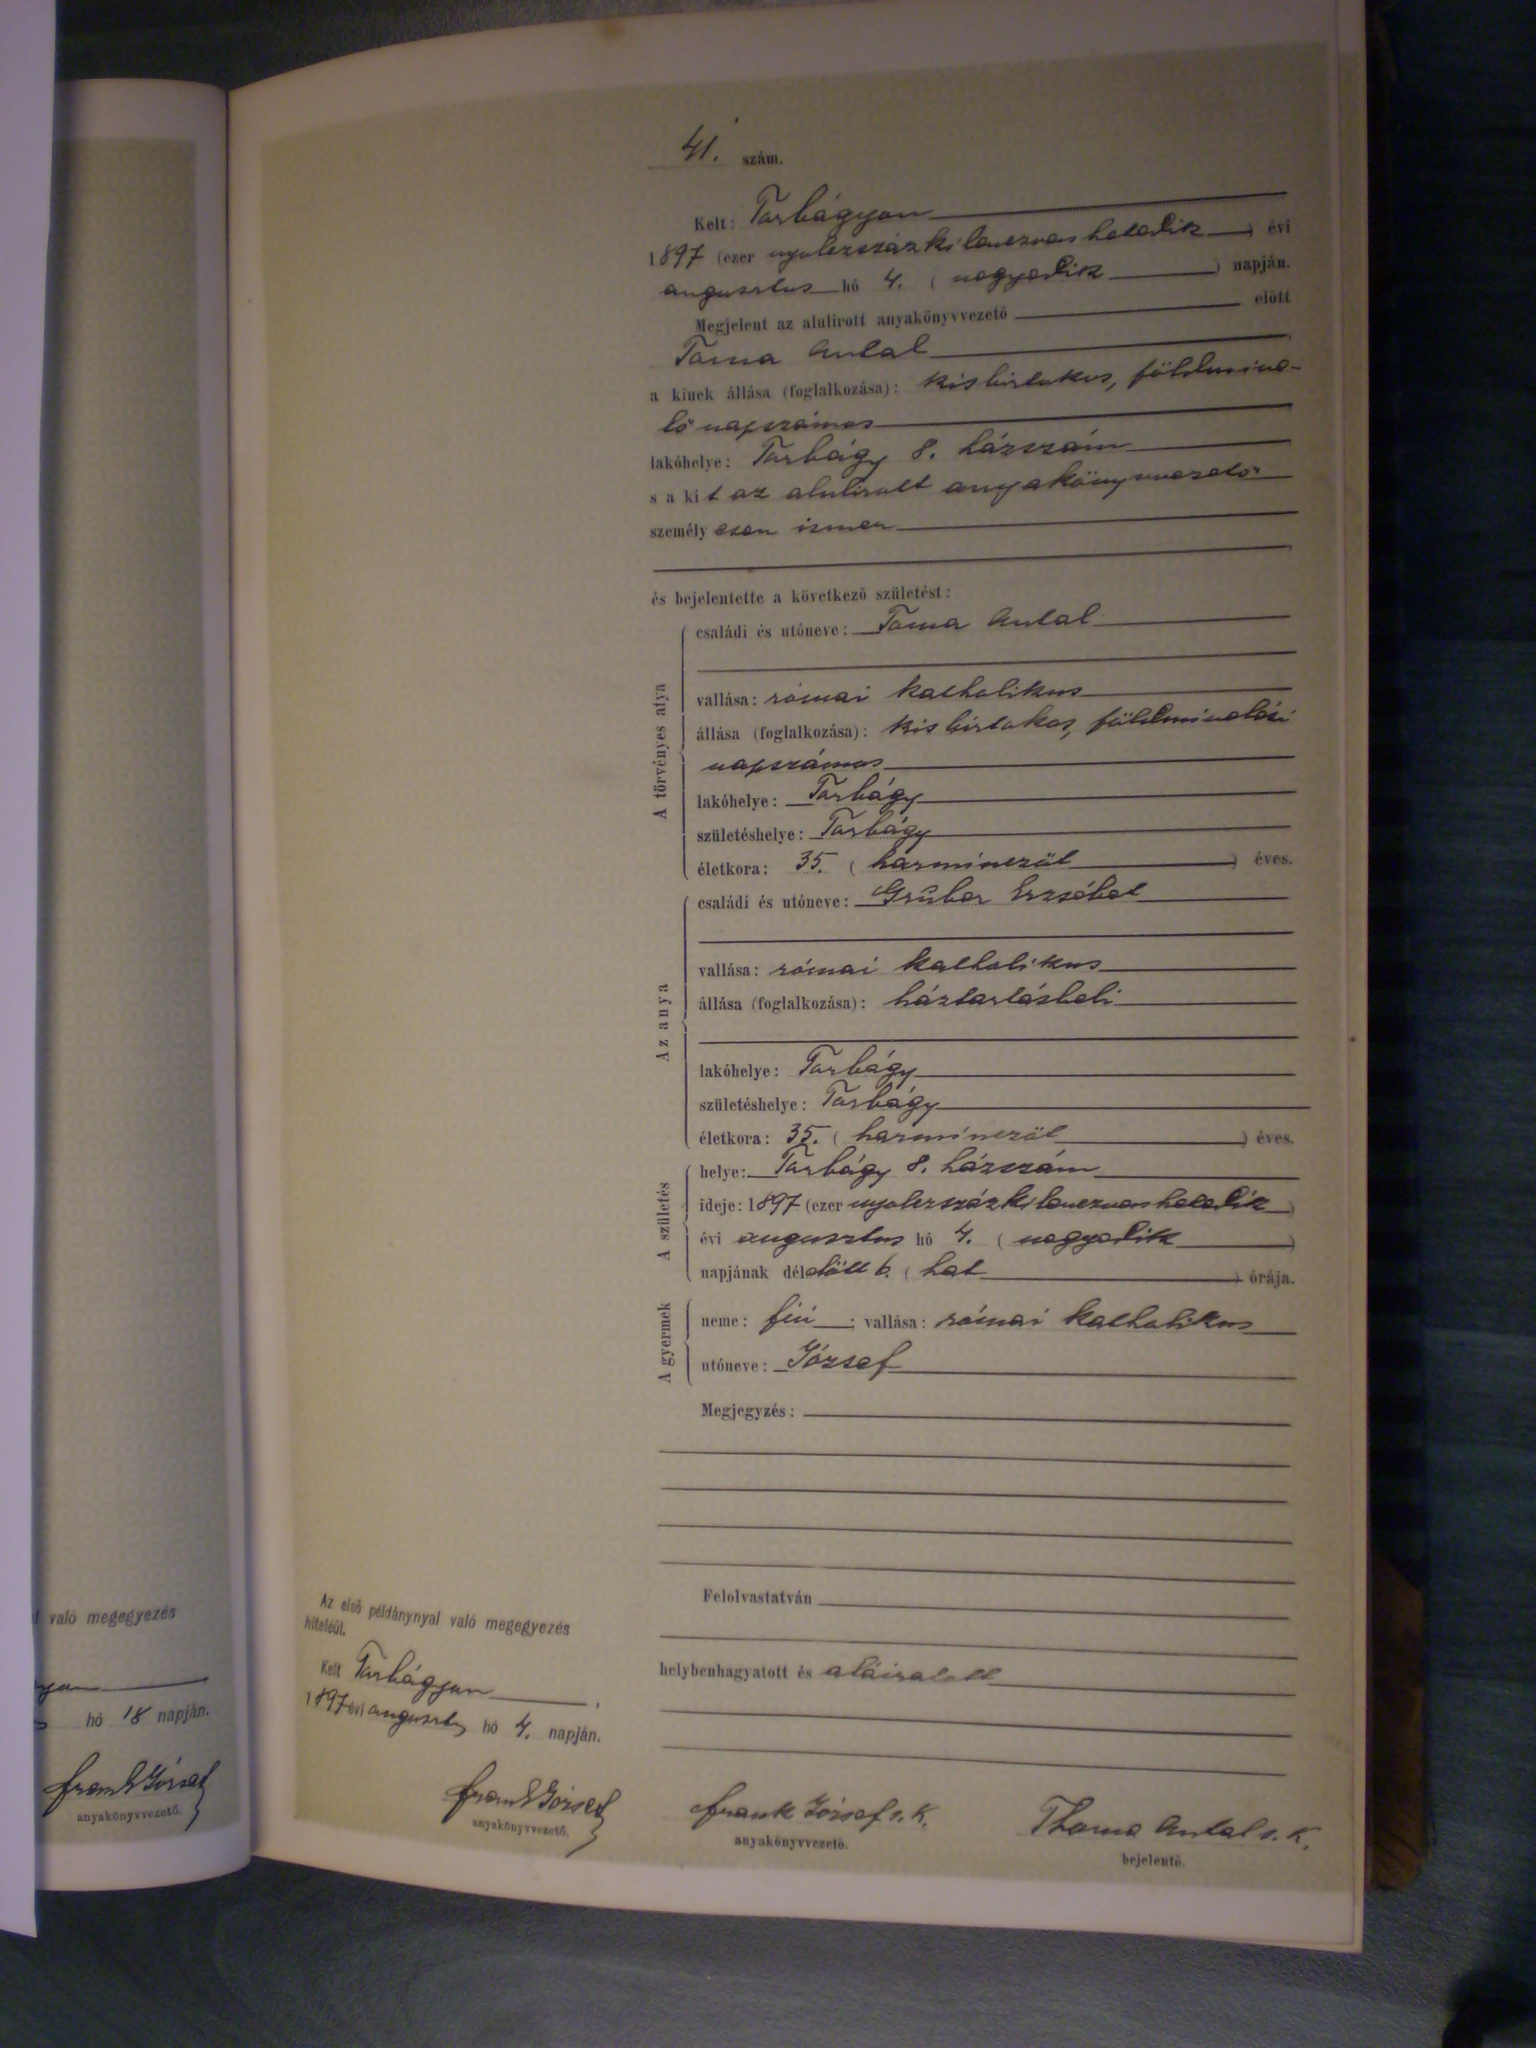 41. szám.
Kelt: Torbágyon
1897 (ezer nyolczszázkilenczvenhetedik) évi
augusztus hó 4. (negyedik) napján.
Megjelent az alulirott anyakönyvvezető előtt
Toma Antal
a kinek állása (foglalkozása): kisbirtokos, földmíve-
lő napszámos
lakóhelye: Torbágy 8. házszám
s a kit az alulirott anyakönyvvezető
személyesen ismer
és bejelentette a következő születést:
A törvényes atya
családi és utóneve: Toma Antal
vallása: római katholikus
állása (foglalkozása): kisbirtokos, földmívelési
napszámos
lakóhelye: Torbágy
születéshelye: Torbágy
életkora: 35. (harminczöt) éves.
Az anya
családi és utóneve: Grúber Erzsébet
vallása: római katholikus
állása (foglalkozása): háztartásbeli
lakóhelye: Torbágy
születéshelye: Torbágy
életkora: 35. (harminczöt) éves.
A születés
helye: Torbágy 8. házszám
ideje: 1897 (ezer nyolczszázkilenczvenhetedik)
évi augusztus hó 4. (negyedik)
napjának délelőtt 6. (hat) órája.
A gyermek
neme: fiú; vallása: római katholikus
utóneve: József
Megjegyzés:
Felolvastatván
helybenhagyatott és aláiratott
Frank József s. k.
anyakönyvvezető.
Thoma Antal s. k.
bejelentő.
Az első példánynyal való megegyezés
hiteléül.
Kelt Torbágyon,
1897 évi auguszt. hó 4. napján.
Frank József
anyakönyvvezető.
való megegyezés
hó 18 napján.
Frank József
anyakönyvvezető.